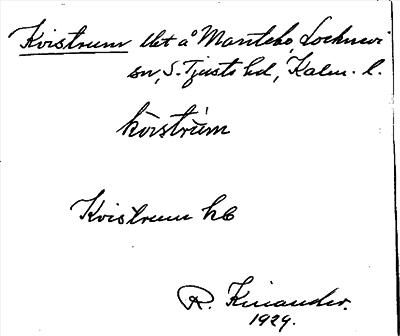 Kvistrum lht å Mantebo, Locknevi
sn, S. Tjusts hd, Kalm. l.
kvistrum
Kvistrum hc
R. Kinander.
1929.